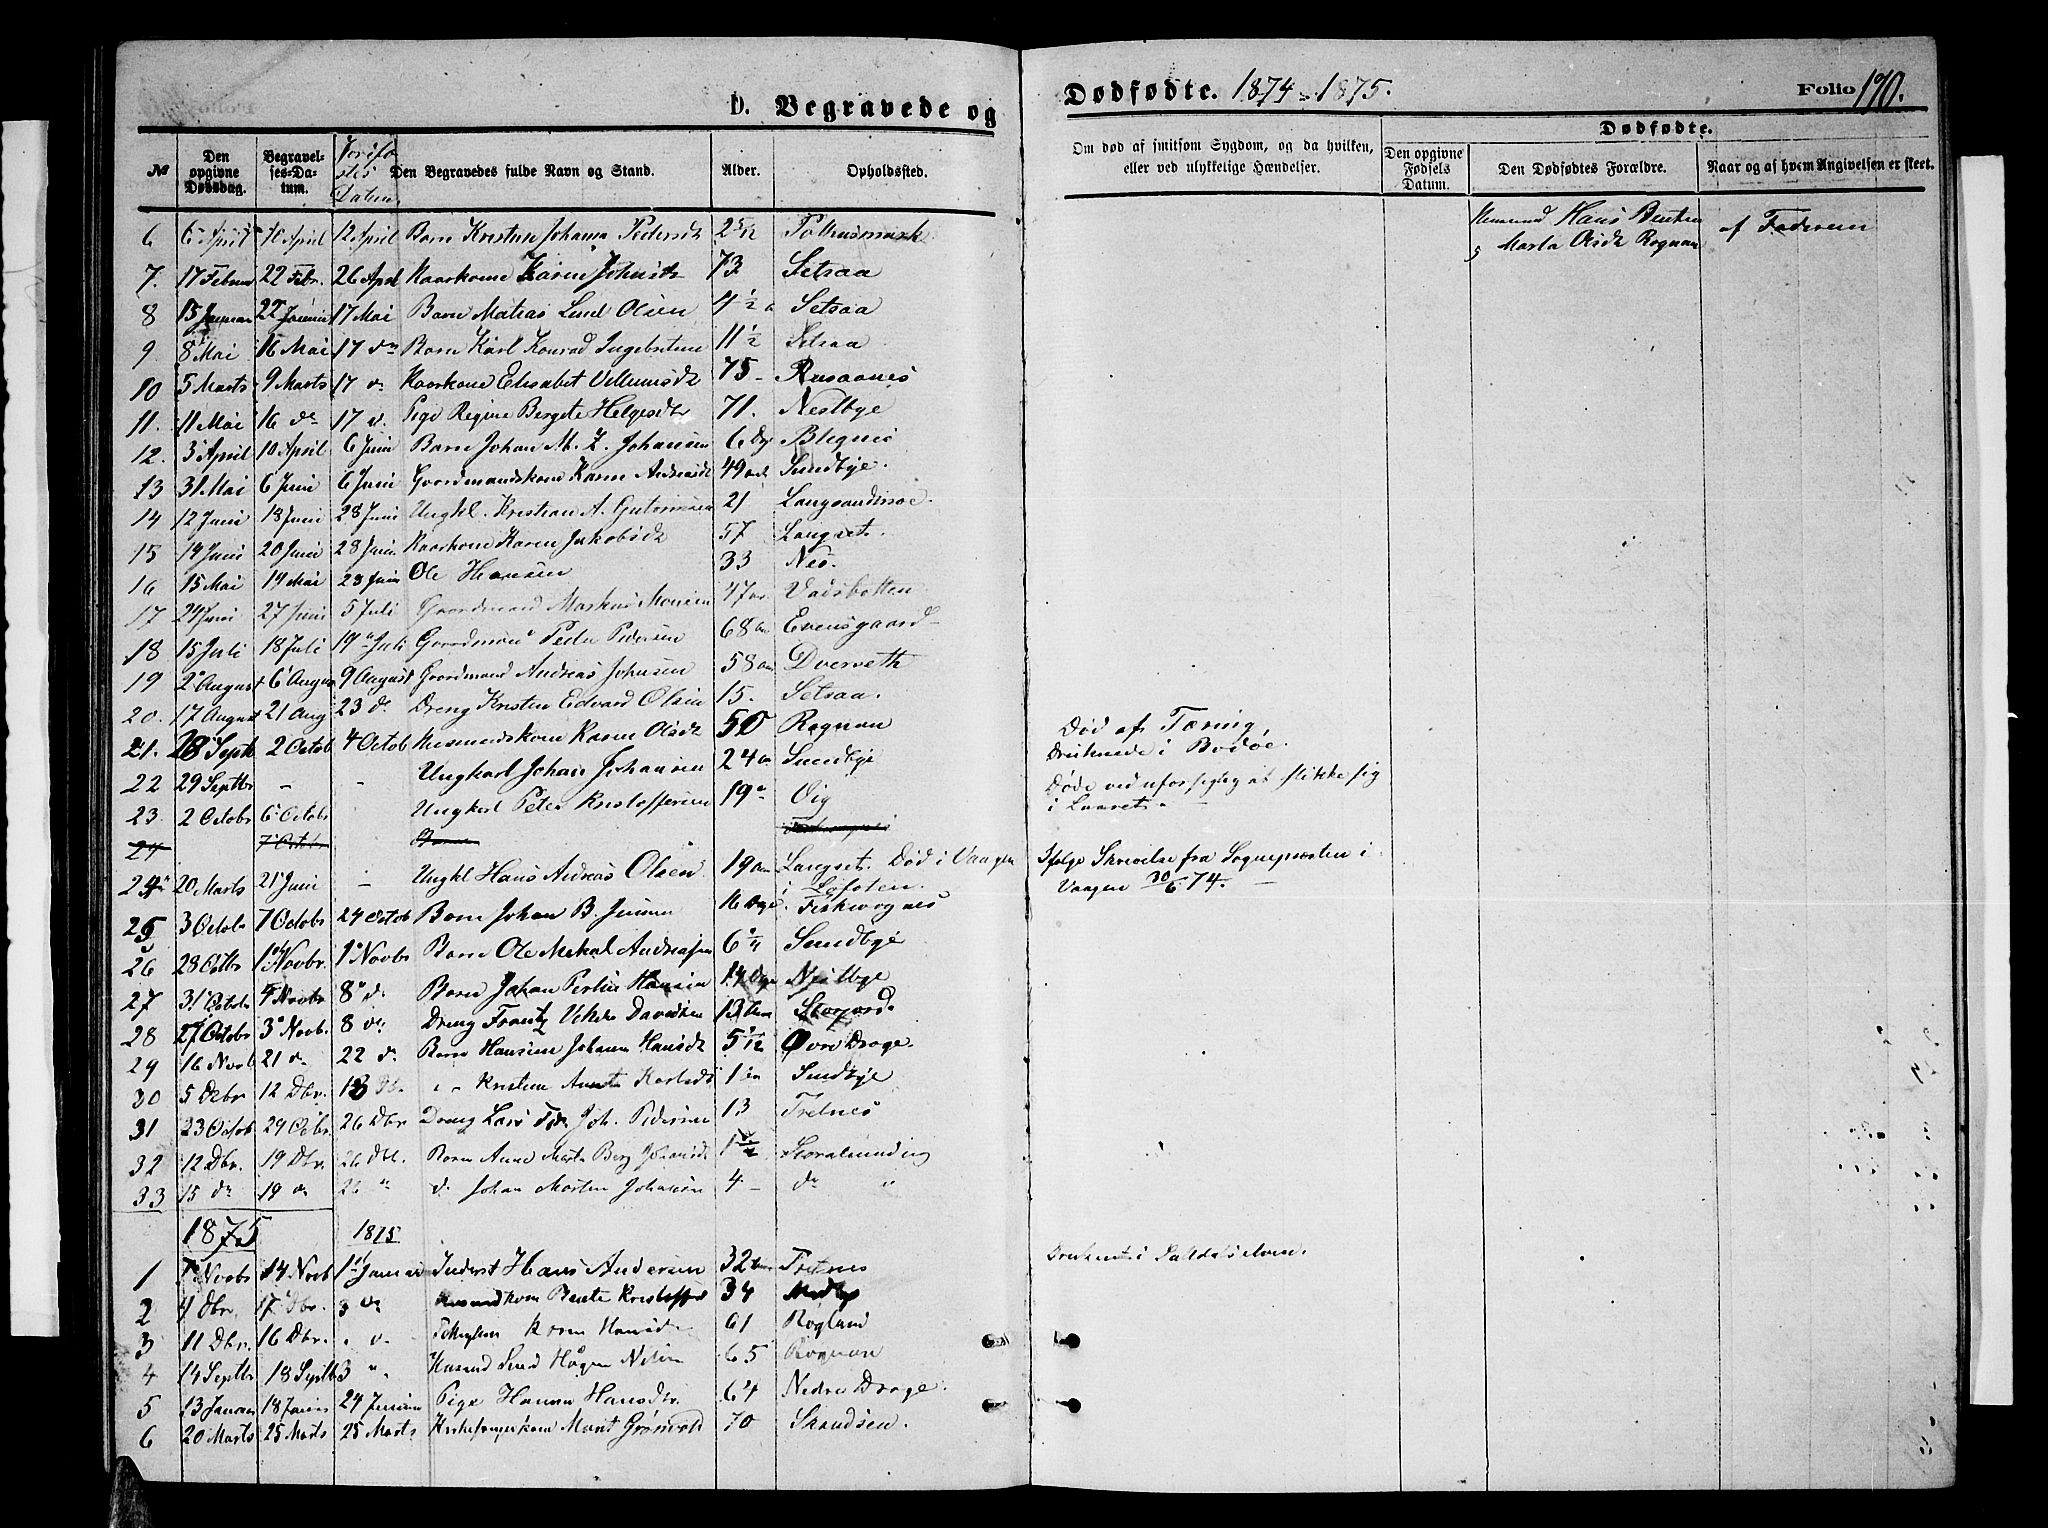 D. Begravede og Dødfødte. 1874-1875. Folio 190.
Dødfødte.
№ Den opgivne Dødsdag. Begravelses-Datum. Jordfæstes Datum Den Begravedes fulde Navn og Stand. Alder. Opholdsted. Om død af smitsom Sygdom, og da hvilken, eller ved ulykkelige Hændelser. Den opgivne Fødsels Datum. Den Dødfødtes Forældre. Naar og af hvem Angivelsen er skeet.
6 6 April 10 April 12 April Barn Kristine Johanna Pedersdt 2 5/12 Hans Bentsen af Faderen
Marta Olsdt Rognan
7. 17 Februar 22 Febr. 26 April Kaarkone Karen Johnsdt 73 Setsaa
8 15 Januar 22 Januar 17 Mai Barn Matias Lund Olsen 4 1/2 Setsaa
9. 8 Mai 16 Mai 17 do Barn Karl Konrad Ingebretsen 11 1/2 Setsaa
10 5 Marts 9 Marts 17 d. Kaarkone Elisabet Villumsdt 75 - Rusaanes
11. 11 Mai 16 do 17 d. Pige Regine Bergete Helgesdtr 71. Nestbye
12. 3 April 10 April 6 Juni Barn Johan M. Z. Johansen 6 Dge
13 31 Mai 6 Juni 6 Juni Goordmandskone Karen Andreasdt 49 Sundbye.
14 12 Juni 18 Juni 28 Juni Ungkl. Kristian A. 21
15 14 Juni 20 Juni 28 Juni Kaarkone Karen Jakobsdt 57 Langset.
16 15 Mai 19 Mai 28 Juni Ole Hansen 33 Nes.
17 24 Juni 27 Juni 5 Juli Goordmand Markus Monsen 47 Vadsbotten
18 15 Juli 18 Juli 19 Juli Goordmand Peder Pedersen 68 Evensgaard
19 2 August 6 August 9 August Goordmand Andreas Johnsen 58 Dverseth
20. 17 August 21 Aug 23 do Dreng Kristen Edvard Olsen 15. Setsaa.
21. 28 Septb 2 Octob 4 Octob Husmandskone Karen Olsdt 50 Rognan Død af Tæring
22 29 Septbr - - Ungkarl Johan Johansen 24 Sundbye Druknede i Bodøe.
23. 2 Octobr 6 Octobr Ungkarl Peter Kristoffersen 19 Vig Døde ved uforsigtig at stikke sig
i Laaret.
24 7 Octobr Barn
24 20 Marts 21 Juni - Ungkl Hans Andreas Olsen 19 Langset. Død i Vaagen Ifølge Skrivelse fra Sognepresten i
i Lofoten. Vaagen 30/6 74.
25 3 Octob 7 Octobr 24 Octob Barn Johan B. Jensen 16 Dge Fiskvognes
26 28 Octbr 1 Novbr. 1 Novbr Barn Ole Mekal Andreasen 6 Sundbye
27 31 Octobr 4 Novbr 8 d. Barn Johan Petter Hansen 14 Dge
28 27 Octobr 3 Novb. 8 do Dreng Frantz Davidsen 13 Storjord.
29 16 Novb 21 do 22 do Barn Hansine Johanna Hansdt 5 Øvre Drage.
30 5 Debr 12 Dbr. 13 Db. Kristine 1 Sundbye
31 23 Octob 29 Octbr. 26 Dbr Dreng Lars Joh. Pedersen 13 Tretnes
32 12 Dbr. 19 Dbr. 26 Dbr. Barn Anne Marta Berg Johansdt 1 Storalmending
33 15 do 19 do 26 " d. Johan Morten Johansen 4 - do "
1875 1875
1 7 Novbr 14 Novb 1 Januar Inderst Hans Andersen 32 Tretnes Druknet i Saltdalselven.
2 4 Dbr. 17 Dbr. 3 do Husmandkone Bente 34
3 11 Dbr. 16 Dbr. " d. Karen Hansdt 61 Røgland
4 14 Septbr 18 Septbr 3 " Nilsen 65 Rognan
5 13 Januar 18 Januar 24 Januar Pige Hanna Hansdtr. 64 Nedre Drage.
6 20 Marts 25 Marts 25 Marts Kirkesangerkone Marit Grønvold 70 Skandsen.